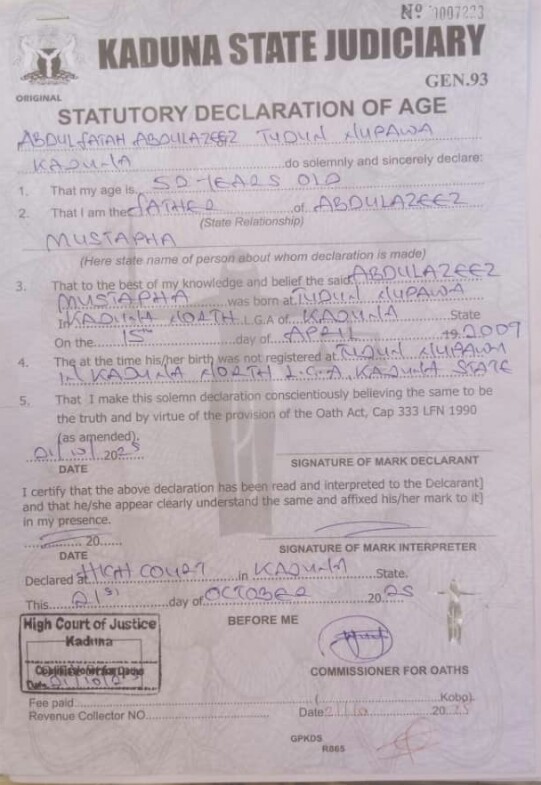 Nº 0007223
KADUNA STATE JUDICIARY
GEN.93
ORIGINAL
STATUTORY DECLARATION OF AGE
ABDULFATAH ABDULAZEEZ TUDUN NUPAWA
KADUNA do solemnly and sincerely declare:
1. That my age is 50 YEARS OLD
2. That I am the FATHER of ABDULAZEEZ
(State Relationship)
MUSTAPHA
(Here state name of person about whom declaration is made)
3. That to the best of my knowledge and belief the said ABDULAZEEZ
MUSTAPHA was born at TUDUN NUPAWA
In KADUNA NORTH L.G.A of KADUNA State
On the 15TH day of APRIL 19 2009
4. The at the time his/her birth was not registered at TUDUN NUPAWA
IN KADUNA NORTH L.G.A, KADUNA STATE
5. That I make this solemn declaration conscientiously believing the same to be
the truth and by virtue of the provision of the Oath Act, Cap 333 LFN 1990
(as amended).
21/10/2025
DATE
SIGNATURE OF MARK DECLARANT
I certify that the above declaration has been read and interpreted to the Delcarant]
and that he/she appear clearly understand the same and affixed his/her mark to it]
in my presence.
20
DATE
SIGNATURE OF MARK INTERPRETER
Declared at HIGH COURT in KADUNA State.
This 21st day of OCTOBER 2025
High Court of Justice
Kaduna
BEFORE ME
COMMISSIONER FOR OATHS
Fee paid ( Kobo)
Revenue Collector NO. Date 21/10 2025
GPKDS
R865